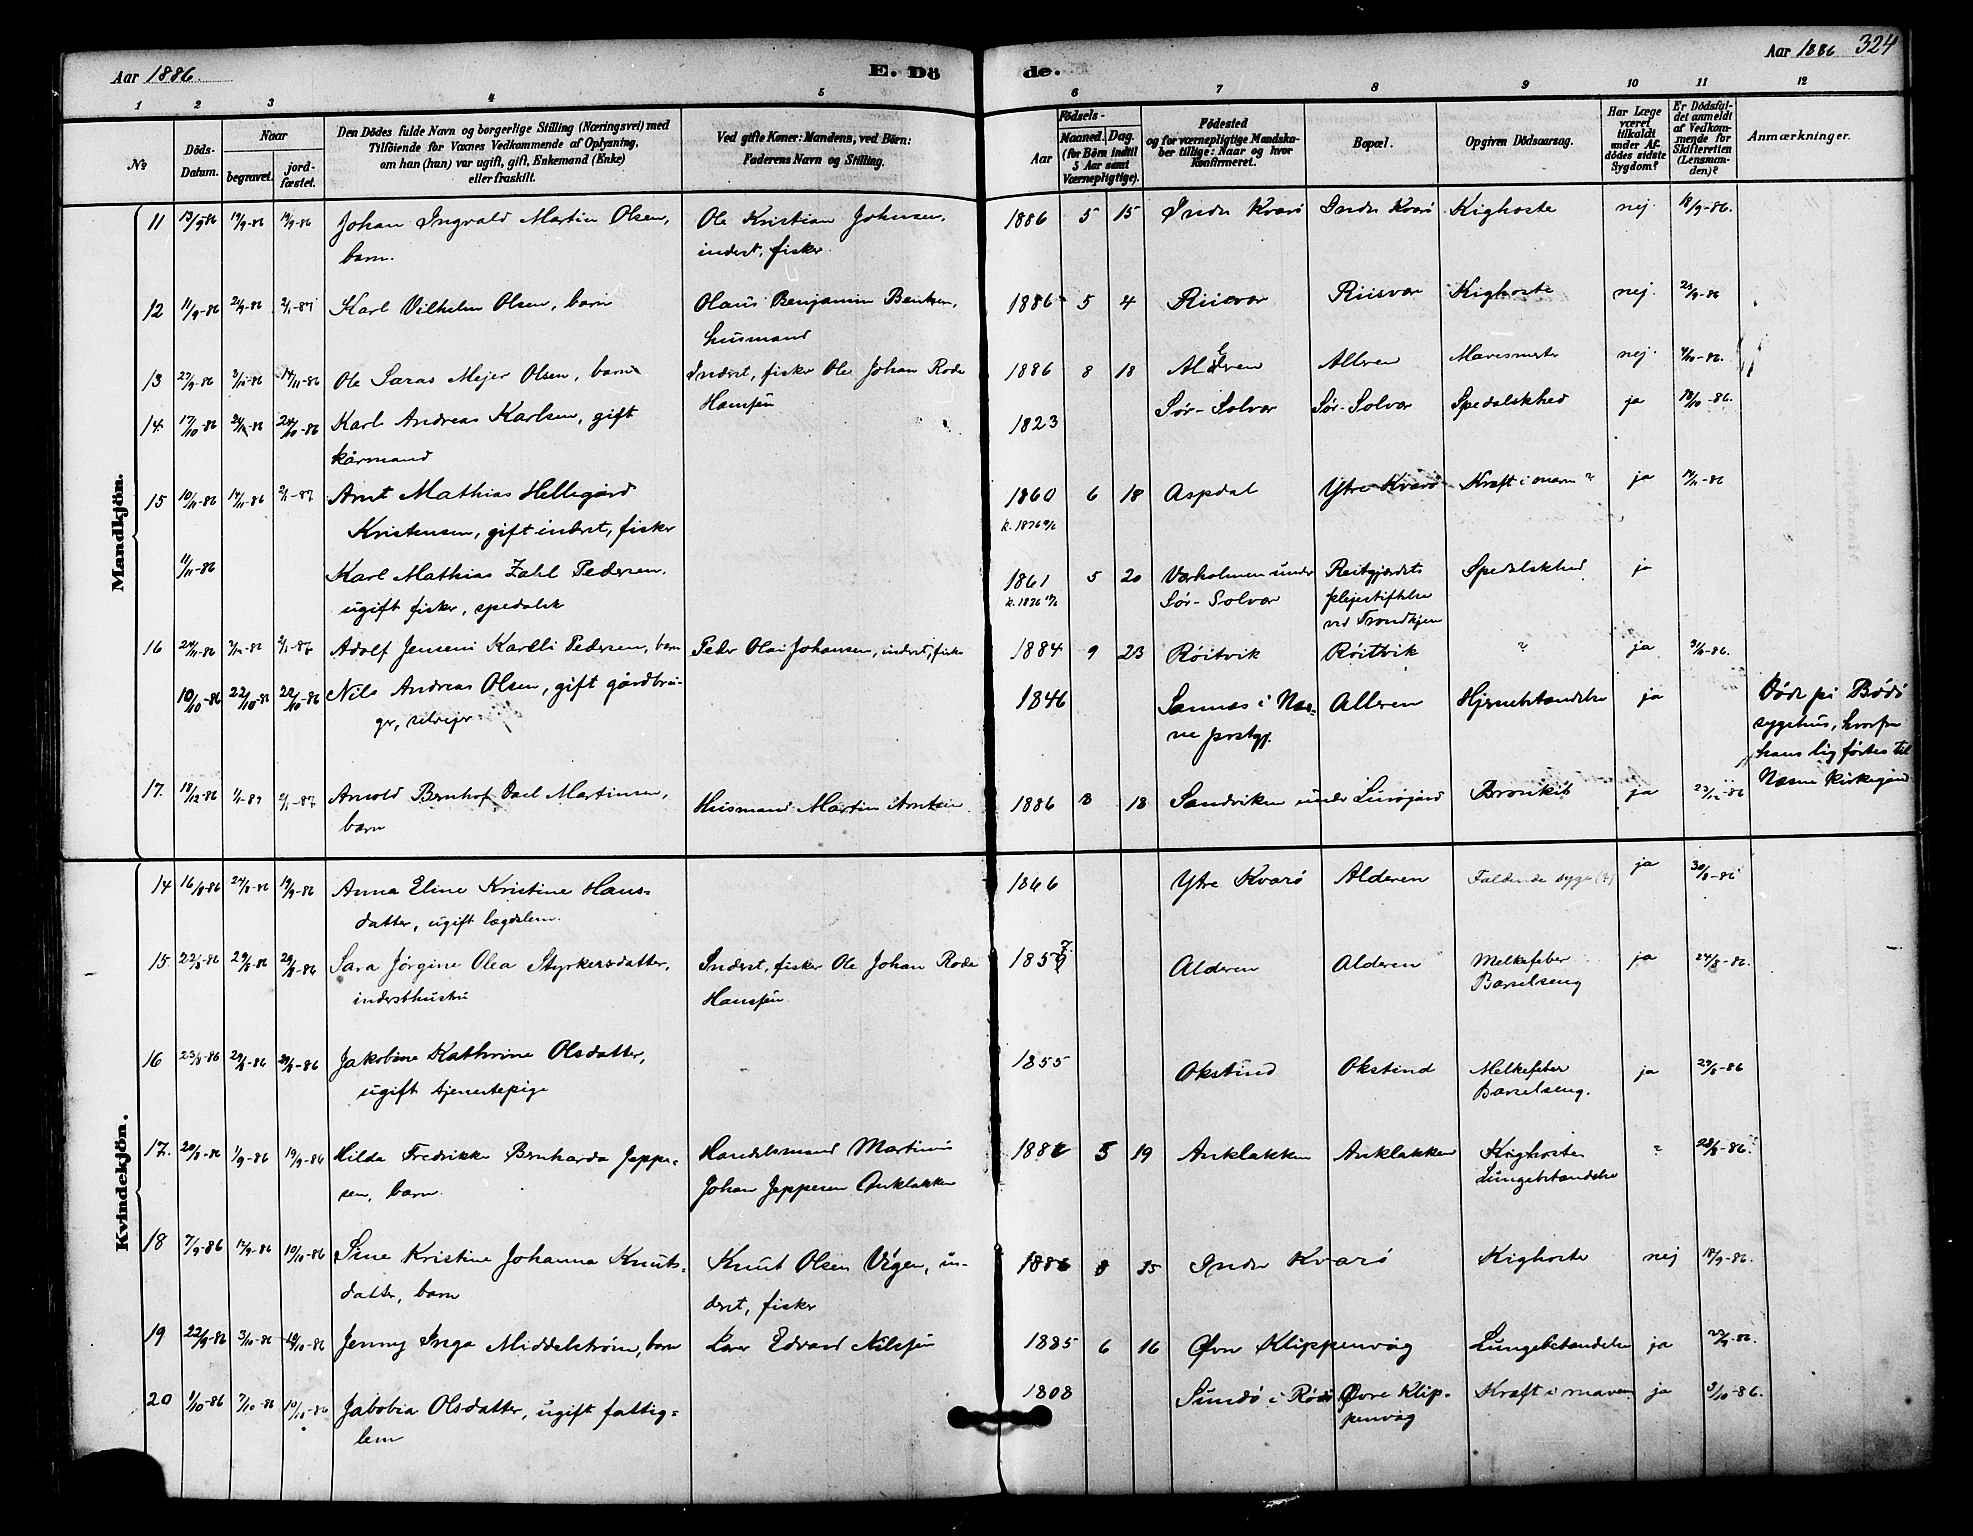 Aar 1886.
E. Dö
de.
Aar 1886
324
1 2 3 4 5 6 7 8 9 10 11 12
No
Döds-Datum.
Naar
begravet.
jordfæstet.
Den Dödes fulde Navn og borgerlige Stilling (Næringsvei) med
Tilföiende for Voxnes Vedkommende af Oplysning,
om han (hun) var ugift, gift, Enkemand (Enke)
eller fraskilt.
Ved gifte Koner: Mandens, ved Börn:
Faderens Navn og Stilling.
Födsels-
Aar
Maaned. Dag.
(for Börn indtil
5 Aar samt
Værnepligtige).
Födested
og for værnepligtige Mandska-
ber tillige: Naar og hvor
konfirmeret.
Bopæl.
Opgiven Dödsaarsag.
Har Læge
været
tilkaldt
under Af-
dödes sidste
Sygdom?
Er Dödsfal-
det anmeldt
af Vedkom-
mende for
Skifteretten
(Lensman-
den)?
Anmærkninger.
Mandkjön.
11 13/9-86 19/9-86 19/9-86 Johan Ingvald Martin Olsen, Ole Kristian Johnsen, 1886 5 15 Indre Kvarö Indre Kvarö Kighoste nej 18/9-86.
barn. inderst, fisker.
12 11/9-86 24/9-86 2/1-87 Karl Vilhelm Olsen, barn Olaus Benjamin Bentsen, 1886 5 4 Riisvær Riisvær Kighoste nej. 25/9-86
husmand
13 27/9-86 3/10-86 14/11-86 Ole Saras Mejer Olsen, barn Inderst, fisker Ole Johan Rode 1886 8 18 Alderen Alderen Mavesmerter nej. 4/10-86.
Hanssön
14. 17/10-86 24/10-86 24/10-86 Karl Andreas Karlsen, gift 1823 Sør-Solvær Sør-Solvær Spedalskhed ja 18/10-86.
kårmand
15 10/11-86 14/11-86 2/1-87 Arnt Mathias Hellegård 1860 6 18 Aspdal Ytre Kvarö Kræft i maven? ja 14/11-86
Kristensen, gift inderst, fisker k. 1876
11/11-86 Karl Mathias Zahl Pedersen. 1861 5 20 Værholmen under Reitgjærdets Spedalskhed ja
ugift fisker, spedalsk k. 1876 Sør-Solvær plejestiftelse
ved Trondhjem
16 24/11-86 2/12-86 2/1-87 Adolf Jenseni Karelli Pedersen, barn Peder Olai Johansen, inderst, fisker 1884 9 23 Röitvik Röitvik ? ja
10/10-86 22/10-86 22/10-86 Nils Andreas Olsen, gift gårdbru- 1846 Sannæs i Næs- Alderen Hjernebetændelse ja Døde på Bodø
ger, selvejer ne prstgj. sygehus, hvorfra
hans lig førtes til
Næsne kirkegård
17. 18/12-86 1/1-87 2/1-87 Arnold Bernhof Dael Martinsen, Husmand Martin Arntsen 1886 8 18 Sandviken under Lurøgård Bronkit ja 23/12-86
barn
Kvindekjön.
14 16/8-86 24/8-86 19/9-86 Anna Eline Kristine Hans- 1866 Ytre Kvarö Alderen Faldende syge (?) ja 30/8-86
datter, ugift lægdslem.
15. 22/8-86 29/8-86 29/8-86 Sara Jørgine Olea Styrkersdatter, Inderst, fisker Ole Johan Rode 1857 Alderen Alderen Melkefeber ja 24/8-86.
indersthustru Hanssön Barselseng
16 23/8-86 29/8-86 29/8-86 Jakobine Kathrine Olsdatter, 1855 Okstind Okstind Melkefeber ja 29/8-86
ugift tjenestepige Barselseng.
17. 20/8-86 1/9-86 19/9-86 Hilda Fredrikke Bernharda Jeppe- Handelsmand Martinus 1886 5 19 Anklakken Anklakken Kighoste ? 28/8-86.
sen, barn. Johan Jeppesen Anklakken Lungebetændelse
18 7/9-86 17/9-86 10/10-86 Sine Kristine Johanna Knuts- Knut Olsen Vågen, in- 1886 8 Indre Kvarö Kighoste nej 18/9-86.
datter, barn derst, fisker
19 22/9-86 3/10-86 10/10-86 Jenny Inga Middelstrøm, barn Lars Edvard Nilssön 1885 6 16 Øvre Klippenvåg Lungebetændelse ja
20 1/10-86 7/10-86 10/10-86 Jakobia Olsdatter, ugift fattig- 1808 Sundö i Rödö Øvre Klip- Kræft i maven ja 3/10-86.
lem penvåg